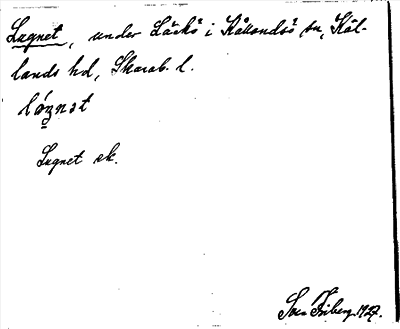 Lugnet, under Läckö i Kållandsö sn, Kål-
lands hd, Skarab. l.
Lugnet ek.
Sven Friberg. 1927.